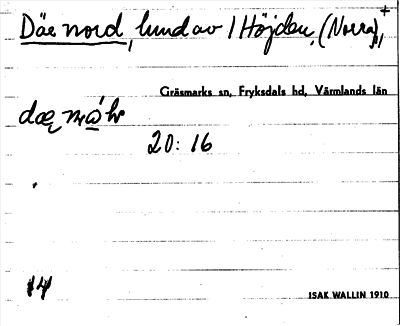 Däe nord, lund av 1 Höjden, (Norra),+
Gräsmarks sn, Fryksdals hd, Värmlands län
20:16
14
ISAK WALLIN 1910